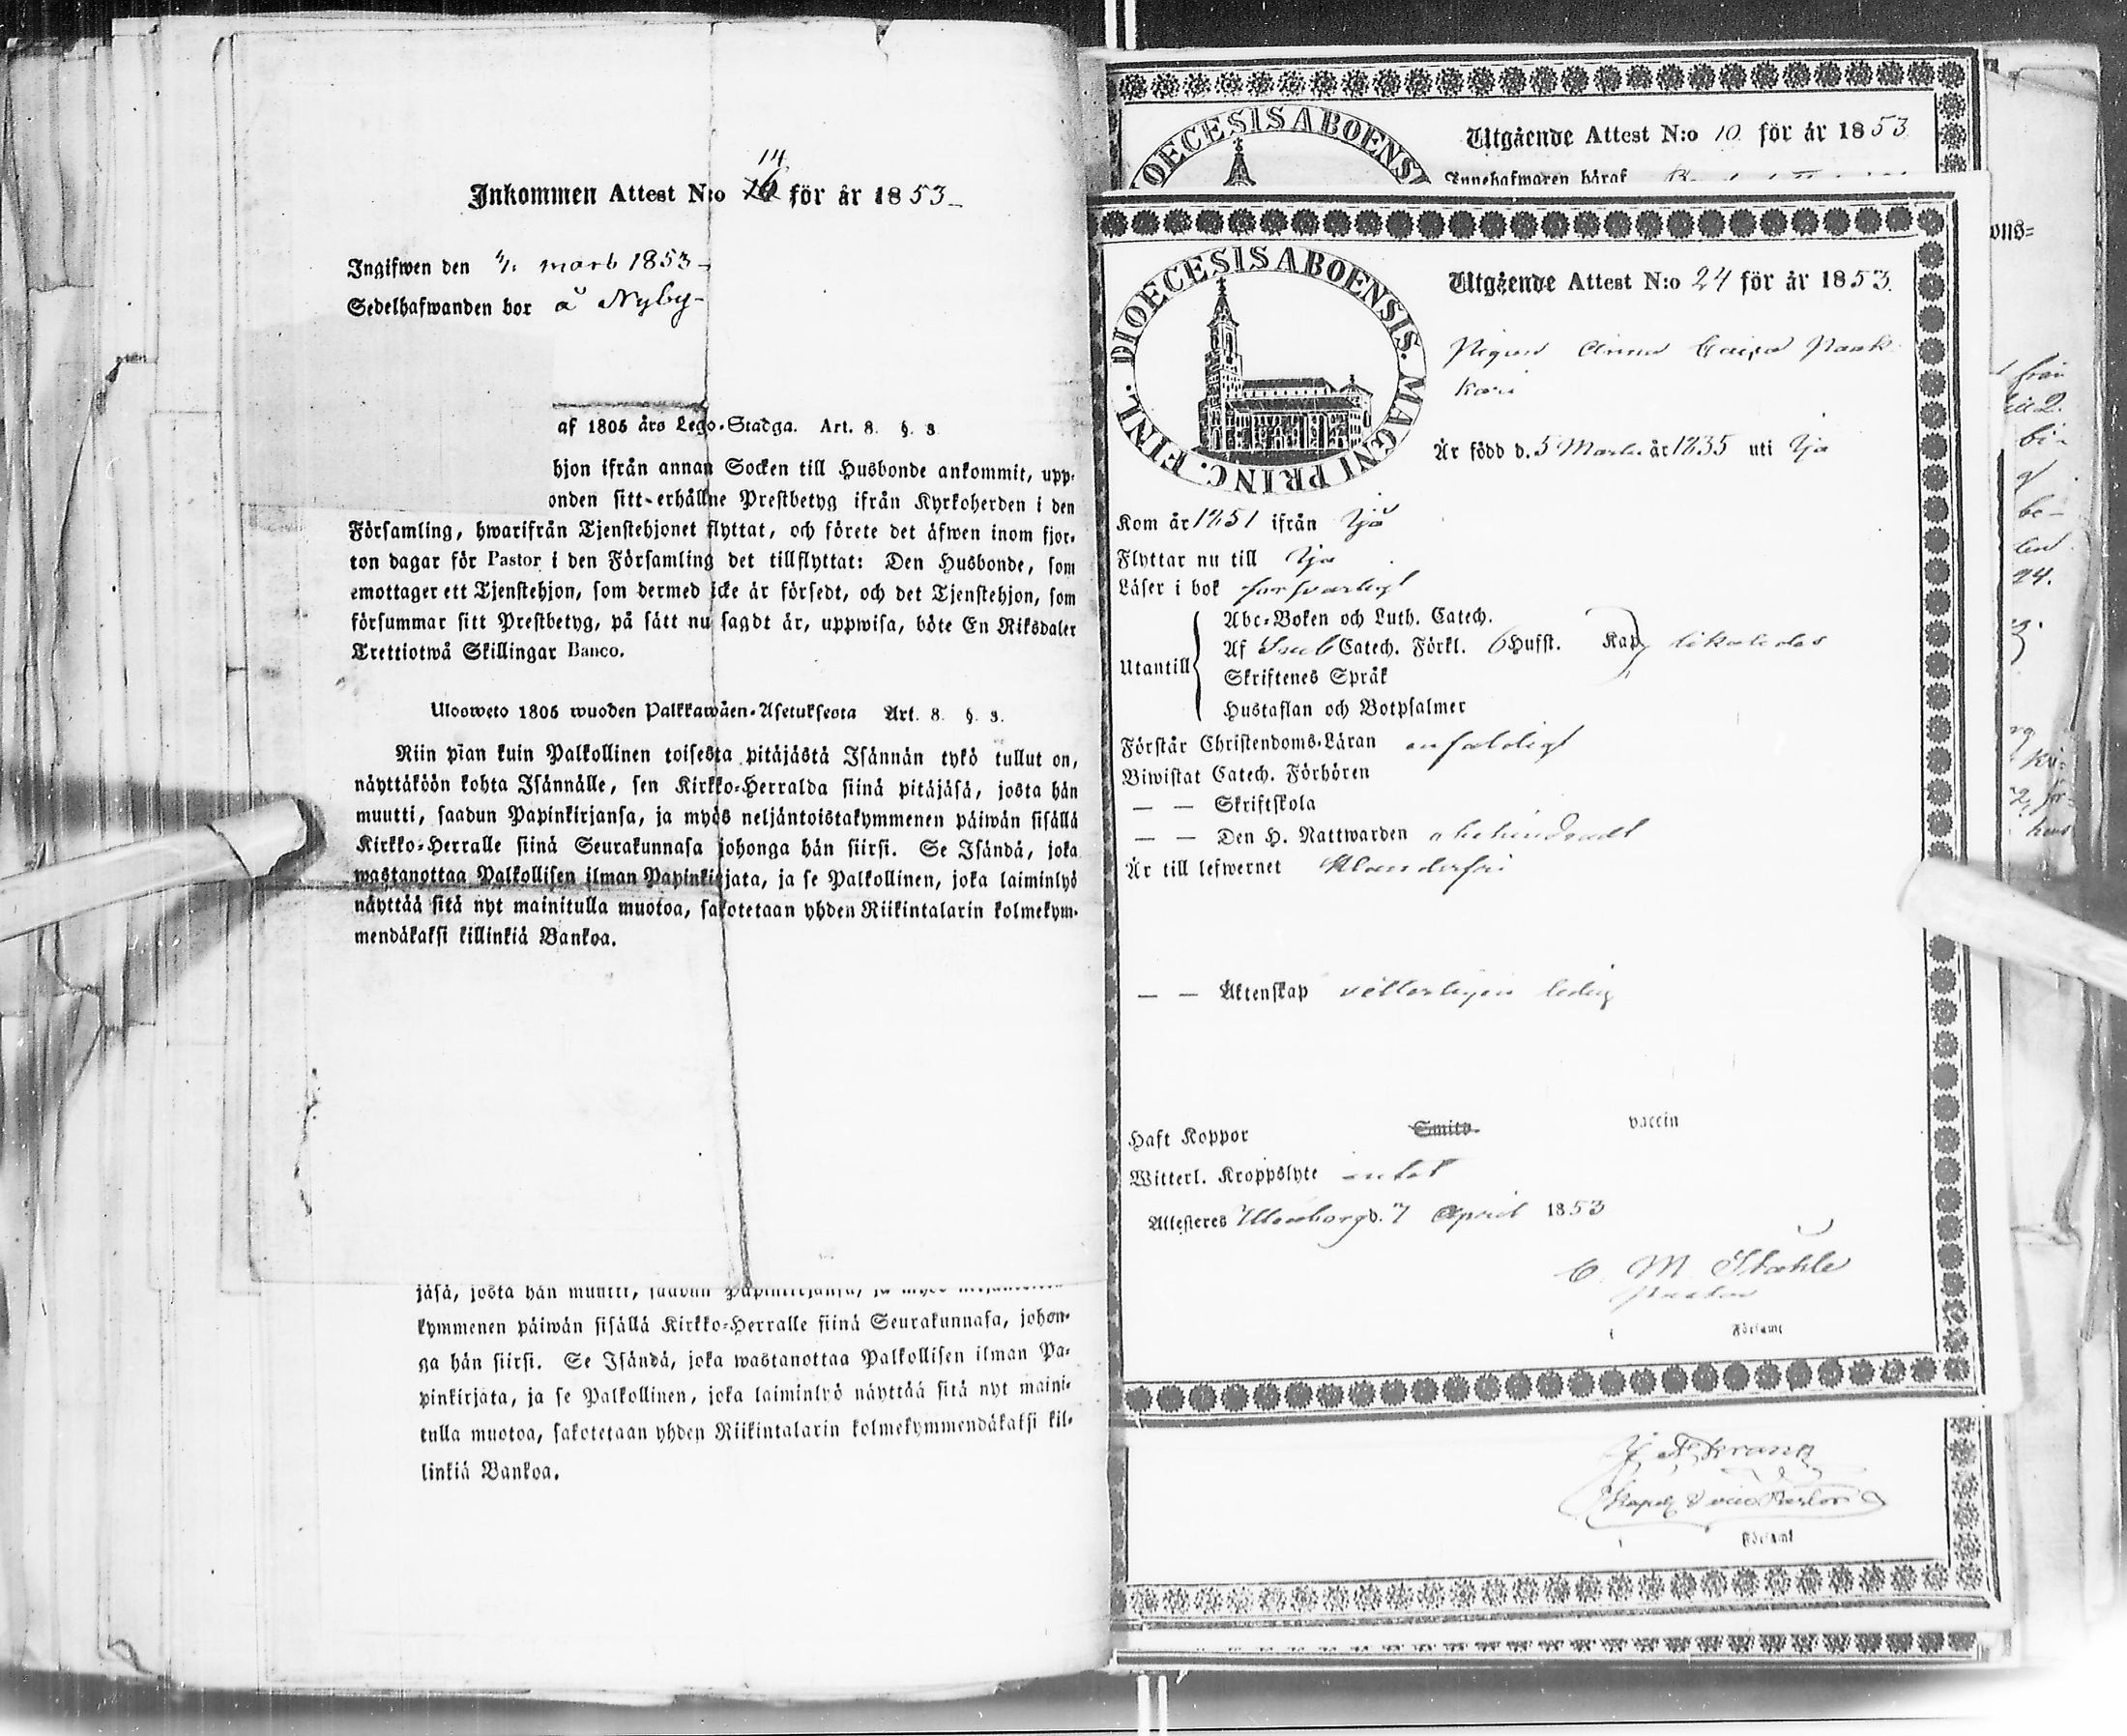 14
Inkommen Attest N:o 16 för år 1853
Ingifwen den 4/1 mars 1853
Sedelhafwanden bor å Nyby
af 1805 års Lego-Stadga. Art. 8. §. 3
hjon ifrån annan Socken till Husbonde ankommit, upp-
onden sitt erhållne Prestbetyg ifrån Kyrkoherden i den
Församling, hwarifrån Tjenstehjonet flyttat, och förete det äfwen inom fjor-
ton dagar för Pastor i den Församling det tillflyttat: Den Husbonde, som
emottager ett Tjenstehjon, som dermed icke är försedt, och det Tjenstehjon, som
försummar sitt Prestbetyg, på sätt nu sagdt är, uppwisa, böte En Riksdaler
Trettiotwå Skillingar Banco.
Ulosweto 1805 wuoden Palkkawäen-Asetuksesta Art. 8. §. 3.
Niin pian kuin Palkollinen toisesta pitäjästä Isännän tykö tullut on,
näyttäköön kohta Isännälle, sen Kirkko-Herralda siinä pitäjäsä, josta hän
muutti, saadun Papinkirjansa, ja myös neljäntoistakymmenen päiwän sisällä
Kirkko-Herralle siinä Seurakunnasa johonga hän siirsi. Se Isändä, joka
wastanottaa Palkollisen ilman Papinkirjata, ja se Palkollinen, joka laiminlyö
näyttää sitä nyt mainitulla muotoa, sakotetaan yhden Riikintalarin kolmekym-
mendäkaksi killinkiä Bankoa.
jäsä, josta hän muutti, saadun Papinkirjansa, ja myös neljäntoista-
kymmenen päiwän sisällä Kirkko-Herralle siinä Seurakunnasa, johon-
ga hän siirsi. Se Isändä, joka wastanottaa Palkollisen ilman Pa-
pinkirjata, ja se Palkollinen, joka laiminlyö näyttää sitä nyt maini-
tulla muotoa, sakotetaan yhden Riikintalarin kolmekymmendäkaksi kil-
linkiä Bankoa.
DIOECESIS ABOENSIS
Utgående Attest N:o 10 för år 1853
Innehafwaren häraf
DIOECESIS ABOENSIS. MAGNI PRINC. FINL.
Utgående Attest N:o 24 för år 1853.
Pigan Anna Caisa Naak
kari
Är född d. 5 Martii år 1835 uti Ijo
Kom år 1851 ifrån Ijo
Flyttar nu till Ijo
Läser i bok försvarligt
Utantill
Abc-Boken och Luth. Catech.
Af Catech. Förkl. 6 Hufst. Kap. likaledes
Skriftenes Språk
Hustaflan och Botpsalmer
Förstår Christendoms-Läran enfaldigt
Biwistat Catech. Förhören
— — Skriftskola
— — Den H. Nattwarden obehindradt
Är till lefwernet Klanderfri
— — Äktenskap vitterligen ledig
Haft Koppor Smitto vaccin
Witterl. Kroppslyte intet
Attesteres Uleåborg d. 7 April 1853
C. M. Ståhle
Pastor
i Församl
Kapell. & vice Pastor
i Församl